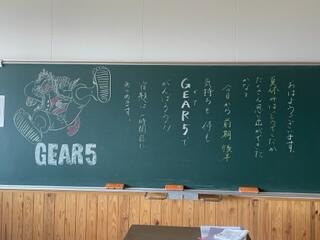 おはようございます。
夏休みはどうでしたか
たくさん思い出ができた
かな?
今日から前期後半
気持ちも体も
GEAR5で
がんばろう!!
宿題は1時間目に
あつめます。
GEAR5